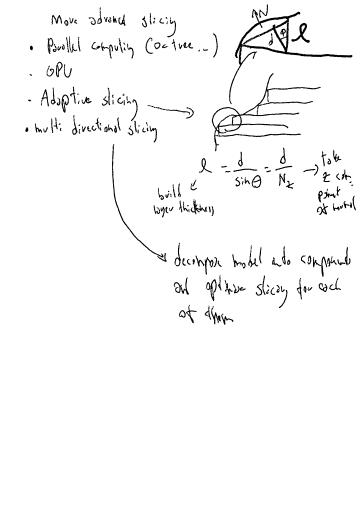 More advanced slicing
• Parallel computing (octree...)
• GPU
• Adaptive slicing
• multi directional slicing
N
d
θ
l
l = d / sin θ = d / Nz → take z com. point of
build layer thickness
decompose model into components
and optimize slicing for each
of them